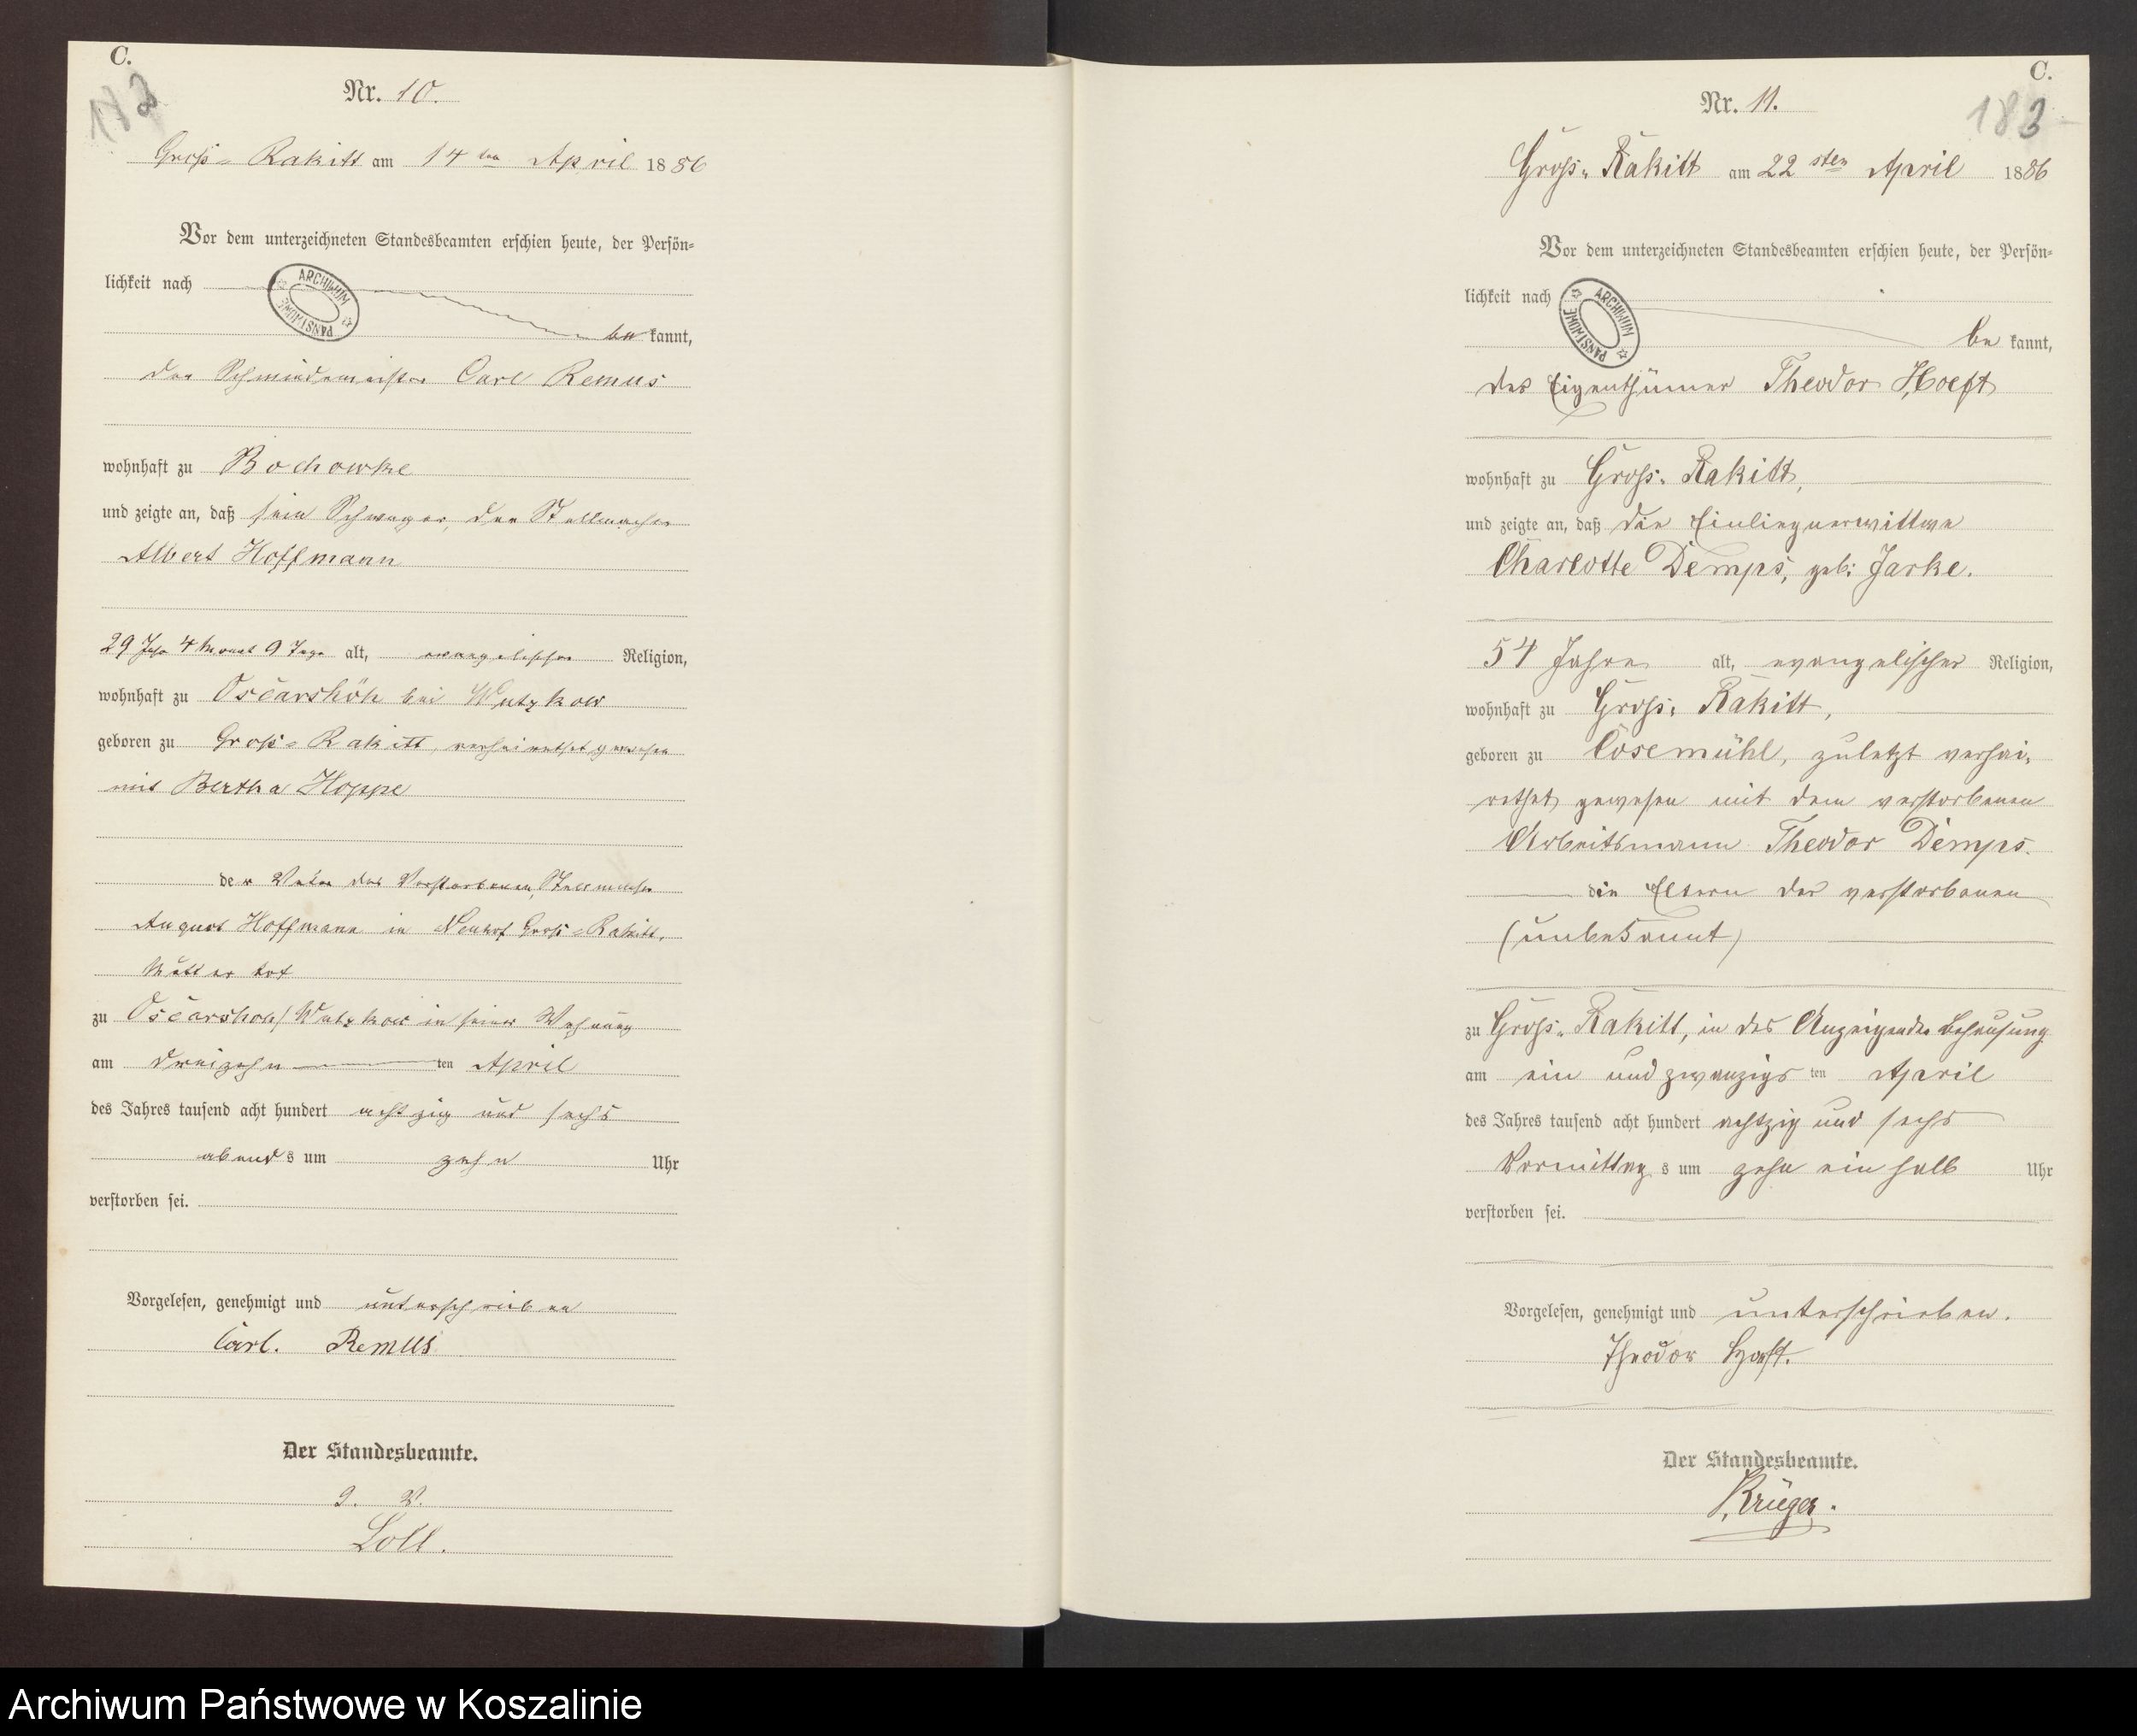 C.
182
Nr. 10.
Groß-Rakitt am 14ten April 1886
Vor dem unterzeichneten Standesbeamten erschien heute, der Persön-
lichkeit nach
ARCHIWUM PAŃSTWOWE
be kannt,
der Schmiedemeister Carl Remus
wohnhaft zu Bochowke
und zeigte an, daß sein Schwager, der Stellmacher
Albert Hoffmann
29 Jahr 4 Monat 9 Tage alt, evangelischer Religion,
wohnhaft zu Oscarshöh bei Wutzkow
geboren zu Groß-Rakitt, verheirathet gewesen
mit Bertha Hoppe
der Vater des Verstorbenen, Stellmacher
August Hoffmann in Neuhof Groß-Rakitt,
Mutter tot
zu Oscarshöh/Wutzkow in seiner Wohnung
am dreizehn ten April
des Jahres tausend acht hundert achtzig und sechs
abend s um zehn Uhr
verstorben sei.
Vorgelesen, genehmigt und unterschrieben
Carl. Remus
Der Standesbeamte.
I. V.
Loll.
C.
183
Nr. 11.
Groß-Rakitt am 22sten April 1886
Vor dem unterzeichneten Standesbeamten erschien heute, der Persön-
lichkeit nach
ARCHIWUM PAŃSTWOWE
be kannt,
der Eigenthümer Theodor Hoeft
wohnhaft zu Groß-Rakitt,
und zeigte an, daß die Einliegerwittwe
Charlotte Demps, geb: Jarke.
54 Jahre alt, evangelischer Religion,
wohnhaft zu Groß-Rakitt,
geboren zu Cosemühl, zuletzt verhei-
rathet gewesen mit dem verstorbenen
Arbeitsmann Theodor Demps.
die Eltern der verstorbenen
(unbekannt)
zu Groß-Rakitt, in des Anzeigenden Behausung
am ein und zwanzigs ten April
des Jahres tausend acht hundert achtzig und sechs
Vormittag s um zehn ein halb Uhr
verstorben sei.
Vorgelesen, genehmigt und unterschrieben.
Theodor Hoeft.
Der Standesbeamte.
Krüger.
Archiwum Państwowe w Koszalinie